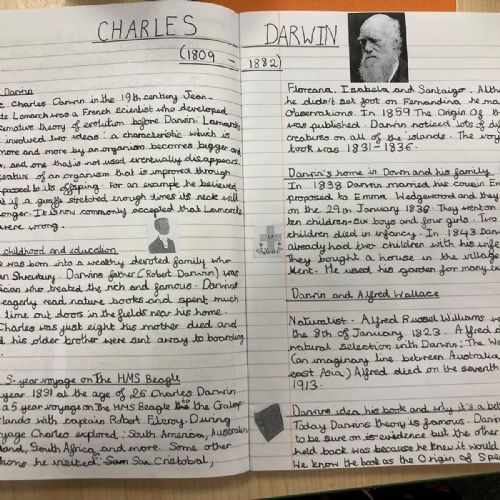 CHARLES DARWIN
(1809 - 1882)
Darwin
Charles Darwin in the 19th century Jean-
Lamarck was a French scientist who developed
theory of evolution before Darwin. Lamarck's
involved two ideas: a characteristic which is
more and more by an organism becomes bigger and
and one that is not used eventually disappears.
feature of an organism that is improved through
passed to its offspring. For an example he believed
if a giraffe stretched enough times its neck will
longer. It is now commonly accepted that Lamarck's
were wrong.
childhood and education
was born into a wealthy devoted family who
Shrewsbury. Darwins father (Robert Darwin) was
who treated the rich and famous. Darwin
eagerly read nature books and spent much
time out doors in the fields near his home.
Charles was just eight his mother died and
his older brother were sent away to boarding
5-year voyage on The HMS Beagle
year 1831 at the age of 26 Charles Darwin
a 5 year voyage on The HMS Beagle to the Galap-
with captain Robert Fitzroy. During
Charles explored: South America, Australia
South Africa, and more. Some other
he visited: San Cristobal,
Floreana, Isabela and Santaigo. Alth
he didn't set foot on Fernandina he ma
observations. In 1859 The Origin Of
was published. Darwin noticed lots of di
creatures on all of the islands. The voy
took was 1831 - 1836.
Darwin's home in Down and his family
In 1838 Darwin married his cousin Em
proposed to Emma Wedgewood and they
on the 29th January 1838. They went on
ten children: six boys and four girls. Two
children died in infancy. In 1843 Darw
already had two children with his wife
They bought a house in the village
Kent. He used his garden for many te
Darwin and Alfred Wallace
Naturalist - Alfred Russel Williams w
the 8th of January 1823. Alfred
natural selection with Darwin: The Wa
(an imaginary line between Australia
east Asia.) Alfred died on the seventh
1913.
Darwins idea his book and why it's a bett
Today Darwins theory is famous. Darw
to be sure on is evidence but the other
held back was because he knew it would
We know the book as the Origin of Spec